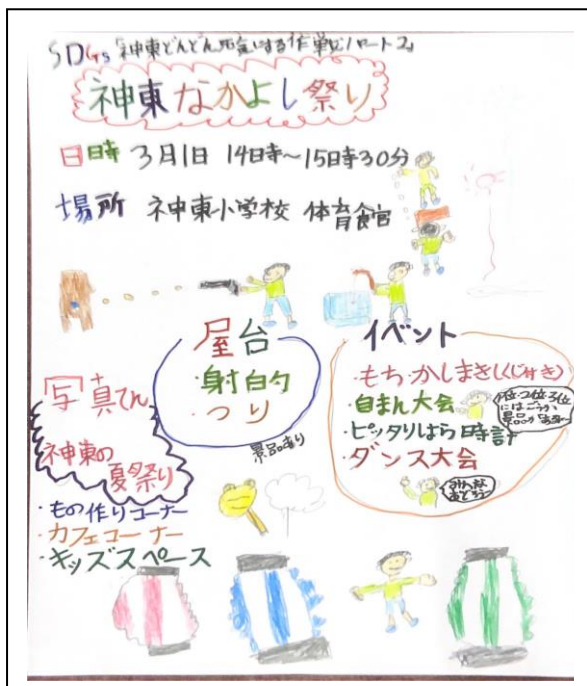 SDGs「神東どんどん元気にする作戦パート2」
神東なかよし祭り
日時 3月1日 14時～15時30分
場所 神東小学校 体育館
屋台
・射的
・つり
景品あり
イベント
・もち・かしまき
・自まん大会
・ピッタリはら時計
・ダンス大会
1位・2位・3位
には
景品が
みんな
おどろう
「写」真てん
神東の
夏祭り
・もの作りコーナー
・カフェコーナー
・キッズスペース